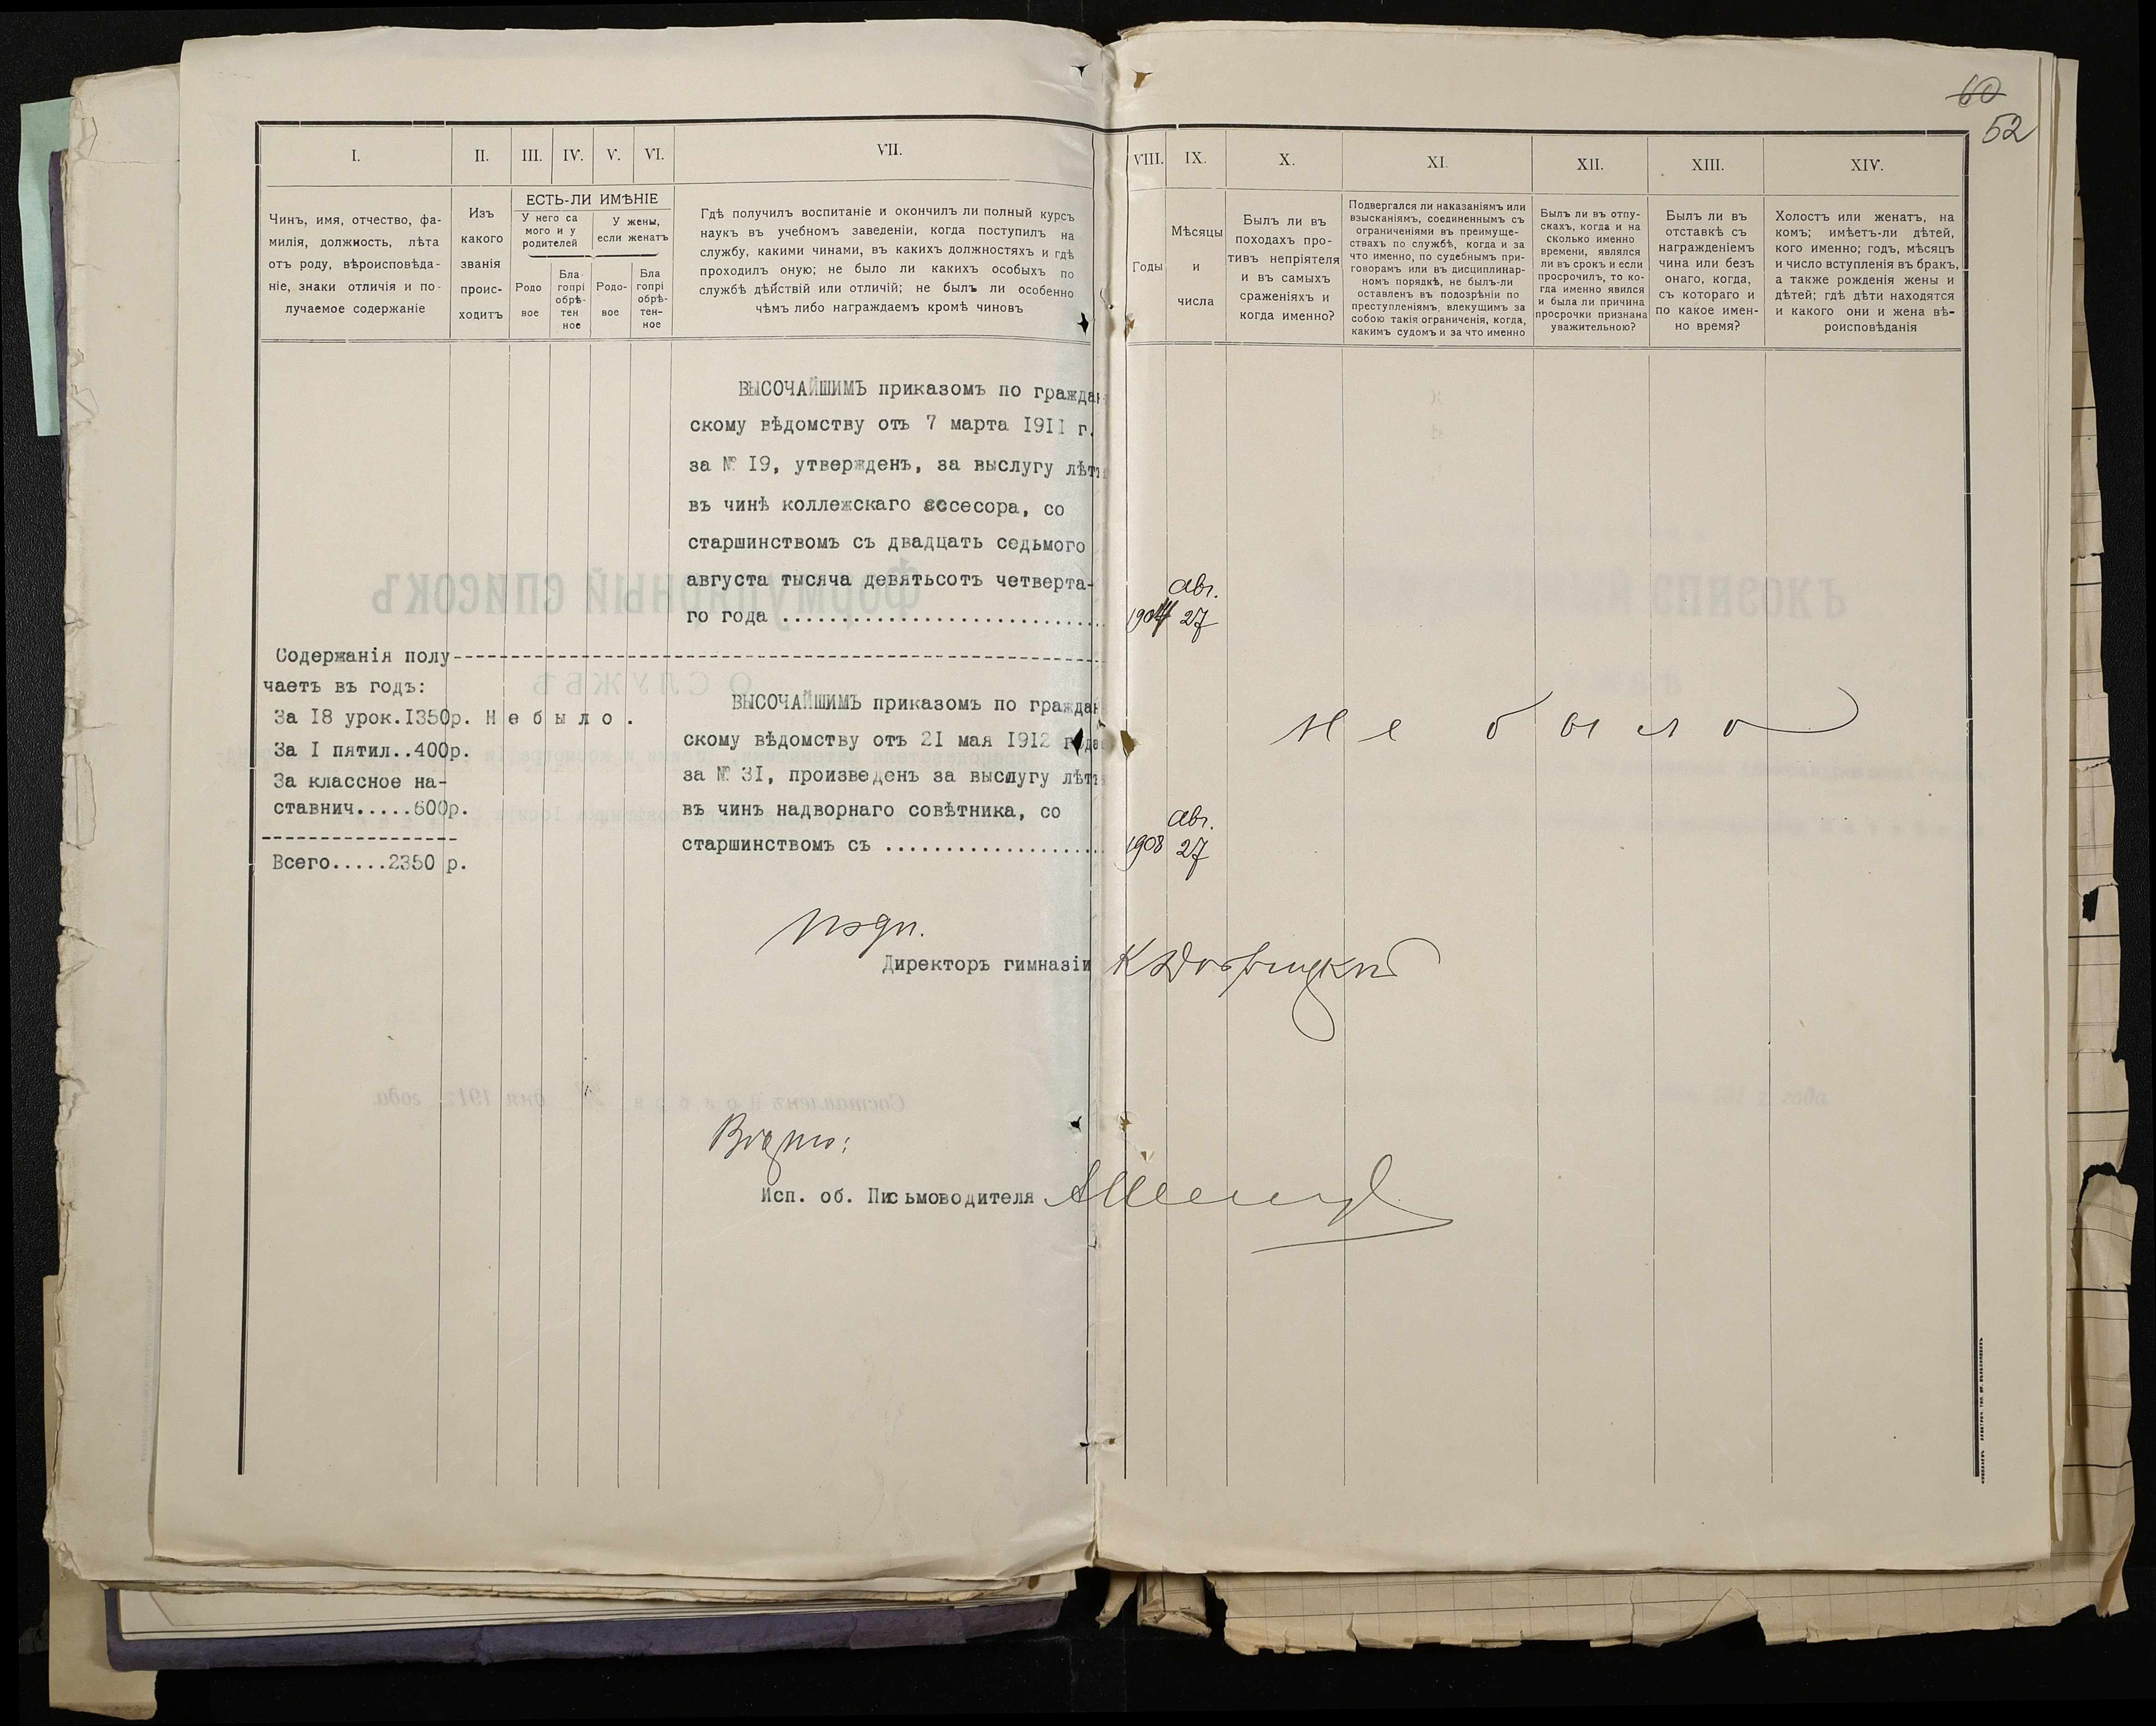 60
52
I.
II.
III.
IV.
V.
VI.
VII.
VIII.
IX.
X.
XI.
XII.
XIII.
XIV.
Чинъ, имя, отчество, фа-
милія, должность, лѣта
отъ роду, вѣроисповѣда-
ніе, знаки отличія и по-
лучаемое содержаніе
Изъ
какого
званія
проис-
ходитъ
ЕСТЬ-ЛИ ИМѢНІЕ
У него са
мого и у
родителей
У жены,
если женатъ
Родо
вое
Бла
гопрі
обрѣ-
тен
ное
Родо-
вое
Бла
гопрі
обрѣ-
тен-
ное
Гдѣ получилъ воспитаніе и окончилъ ли полный курсъ
наукъ въ учебномъ заведеніи, когда поступилъ на
службу, какими чинами, въ какихъ должностяхъ и гдѣ
проходилъ оную; не было ли какихъ особыхъ по
службѣ дѣйствій или отличій; не былъ ли особенно
чѣмъ либо награждаемъ кромѣ чиновъ
Годы
Мѣсяцы
и
числа
Былъ ли въ
походахъ про-
тивъ непріятеля
и въ самыхъ
сраженіяхъ и
когда именно?
Подвергался ли наказаніямъ или
взысканіямъ, соединеннымъ съ
ограниченіями въ преимуще-
ствахъ по службѣ, когда и за
что именно, по судебнымъ при-
говорамъ или въ дисциплинар-
номъ порядкѣ, не былъ-ли
оставленъ въ подозрѣніи по
преступленіямъ, влекущимъ за
собою такія ограниченія, когда,
какимъ судомъ и за что именно
Былъ ли въ отпу-
скахъ, когда и на
сколько именно
времени, являлся
ли въ срокъ и если
просрочилъ, то ко-
гда именно явился
и была ли причина
просрочки признана
уважительною?
Былъ ли въ
отставкѣ съ
награжденіемъ
чина или безъ
онаго, когда,
съ котораго и
по какое имен-
но время?
Холостъ или женатъ, на
комъ; имѣетъ-ли дѣтей,
кого именно; годъ, мѣсяцъ
и число вступленія въ бракъ,
а также рожденія жены и
дѣтей; гдѣ дѣти находятся
и какого они и жена вѣ-
роисповѣданія
ВЫСОЧАЙШИМЪ приказомъ по граждан
скому вѣдомству отъ 7 марта 1911 г.
за № 19, утвержденъ, за выслугу лѣтъ
въ чинѣ коллежскаго ассесора, со
старшинствомъ съ двадцать седьмого
августа тысяча девятьсотъ четверта-
го года ...........................
авг.
1904 27
Содержанія полу-
чаетъ въ годъ:
За 18 урок.1350р.
За 1 пятил..400р.
За классное на-
ставнич.....600р.
Всего.....2350 р.
Не было.
ВЫСОЧАЙШИМЪ приказомъ по граждан
скому вѣдомству отъ 21 мая 1912 года
за № 31, произведенъ за выслугу лѣтъ
въ чинъ надворнаго совѣтника, со
старшинствомъ съ ...................
авг.
1908 27
Не было
подп.
Директоръ гимназіи
Исп. об. Письмоводителя